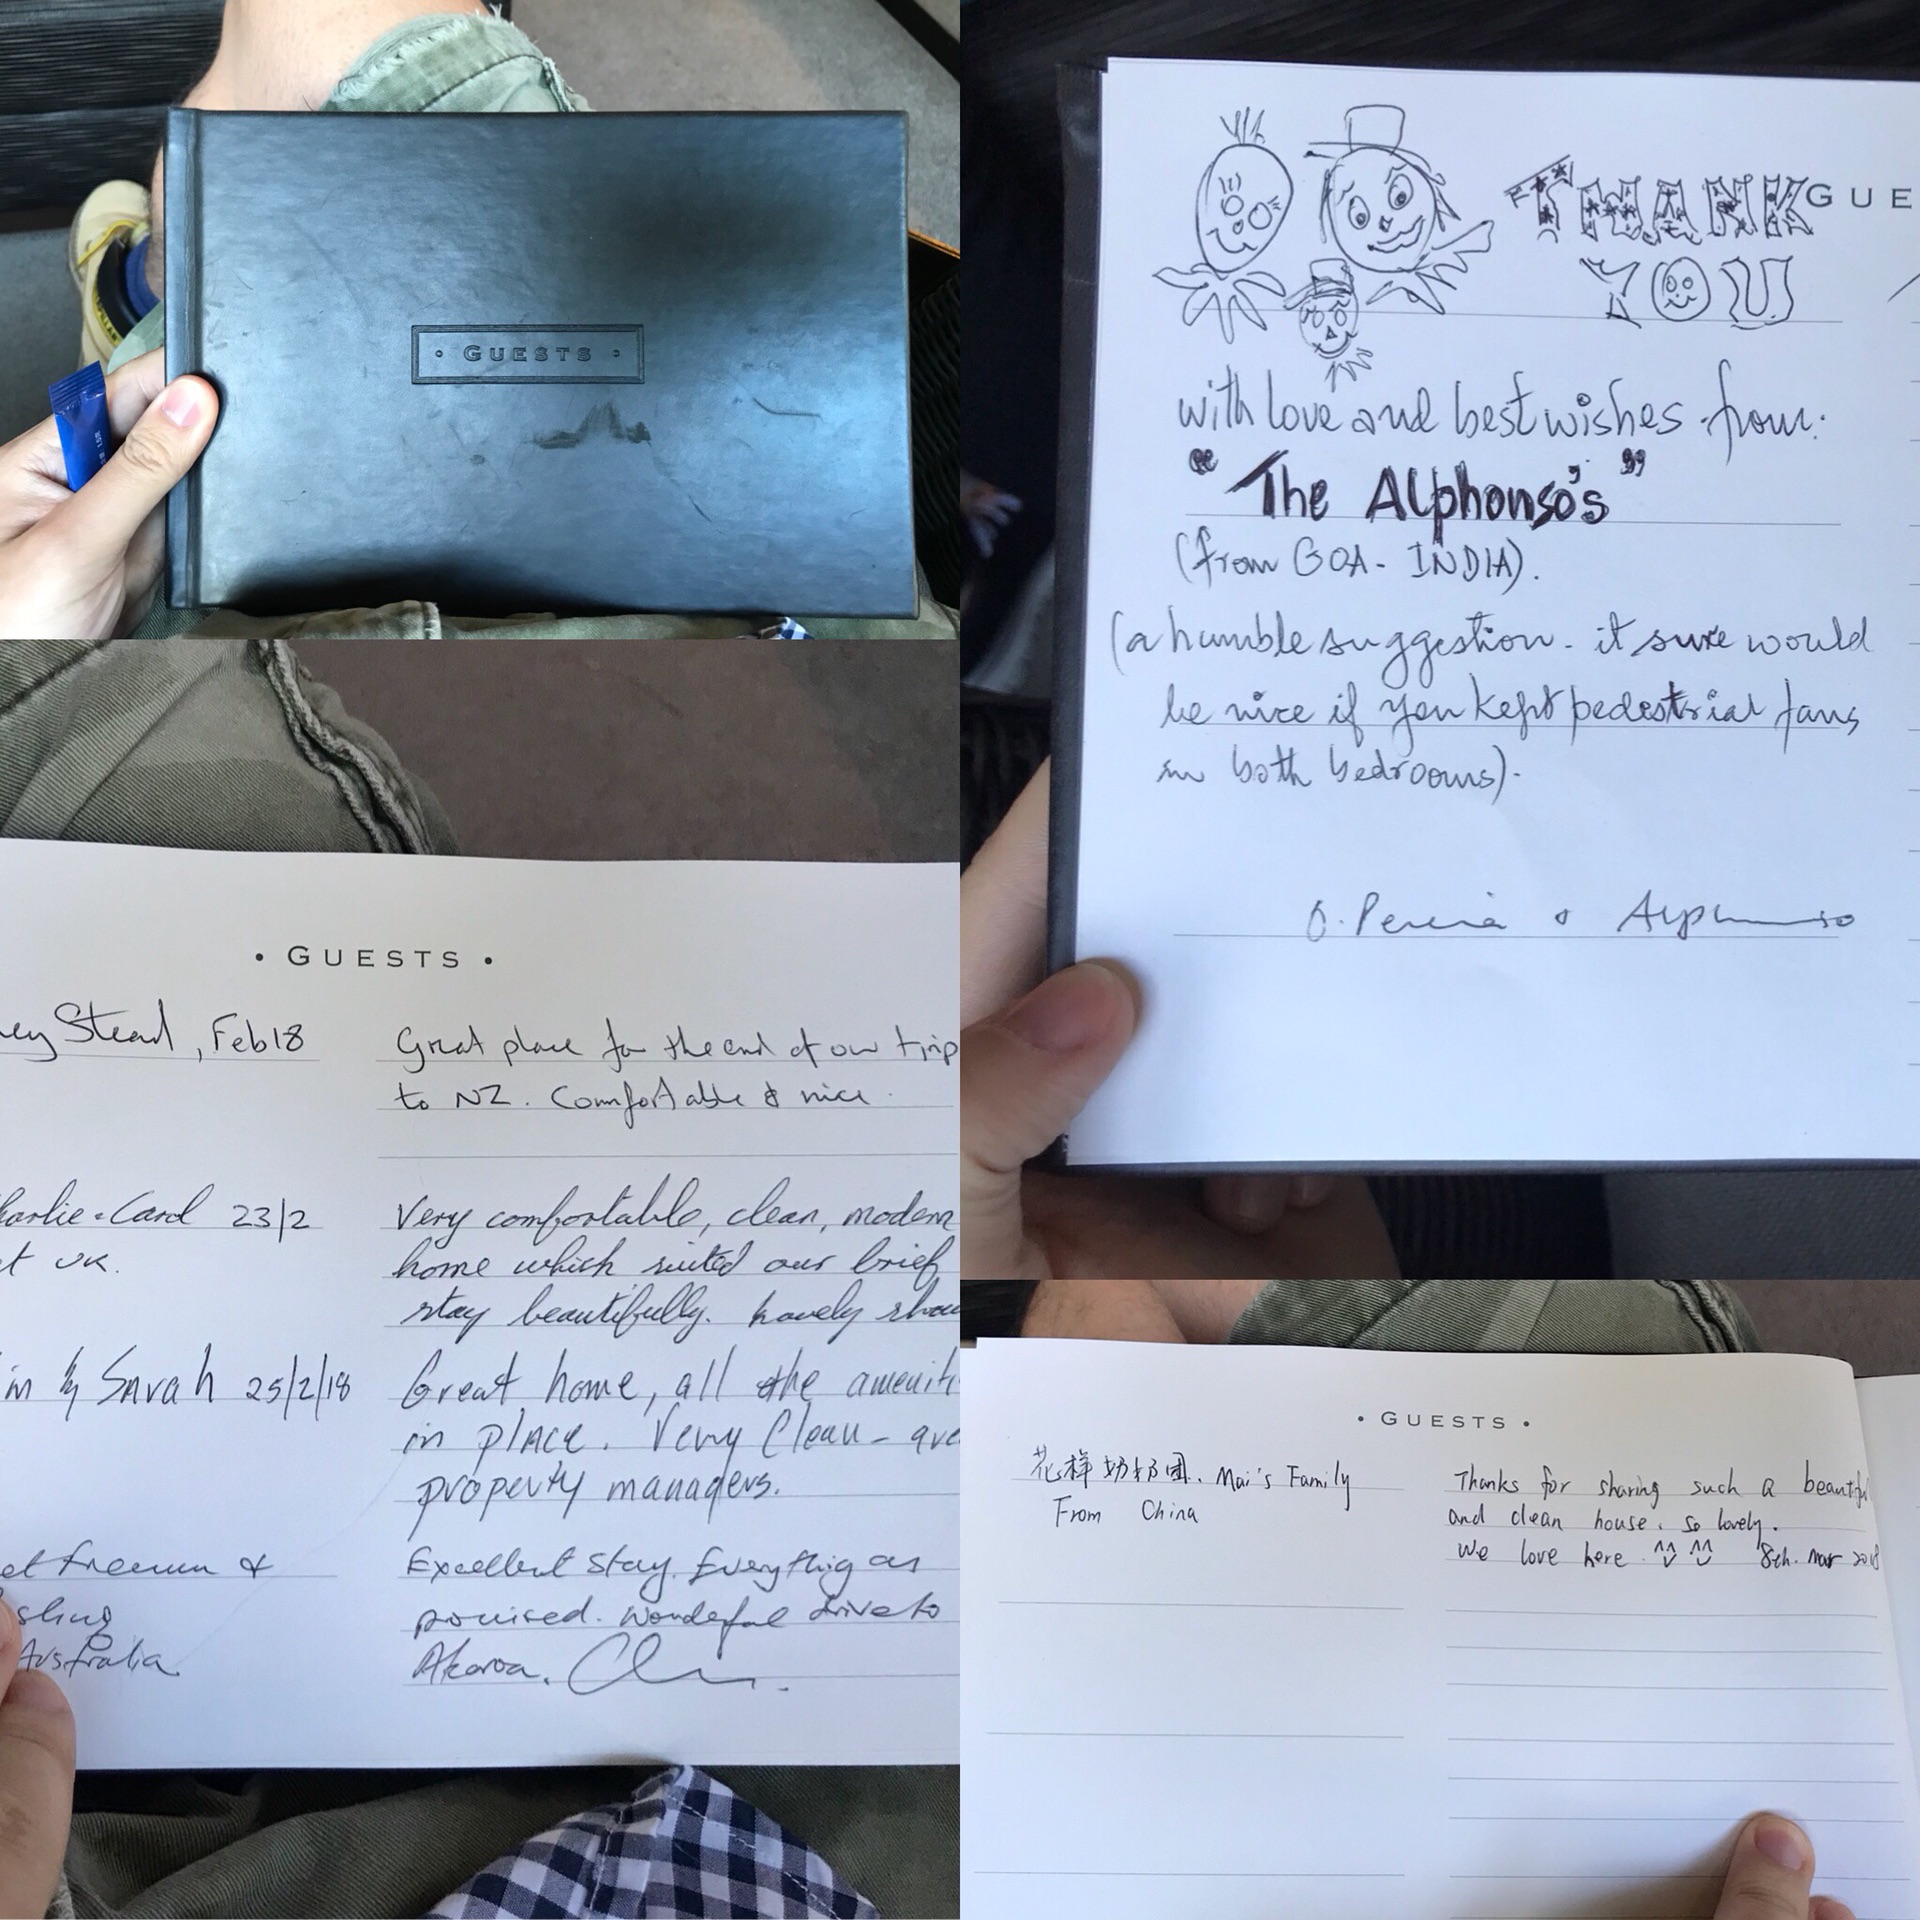 · GUESTS ·
THANK
GUE
YOU
with love and best wishes from:
"The Alphonso's"
(from GOA - INDIA).
(a humble suggestion - it sure would
be nice if you kept pedestrial fans
in both bedrooms).
O. Pereira & Alphonso
· GUESTS ·
ey Stead, Feb 18
Great place for the end of our trip
to NZ. Comfortable & nice.
harlie & Carol 23/2
t UK.
Very comfortable, clean, modern
home which suited our brief
stay beautifully. Lovely show
im & Sarah 25/2/18
Great home, all the ameniti
in place. Very Clean - 
property managers.
et Freeman &
Australia
Excellent stay. Everythig as
promised. Wonderful drive to
Akaroa.
· GUESTS ·
花样奶奶团. Mai's Family
From China
Thanks for sharing such a beautiful
and clean house. so lovely.
We love here. ^^ ^^ 8th. Mar 2018